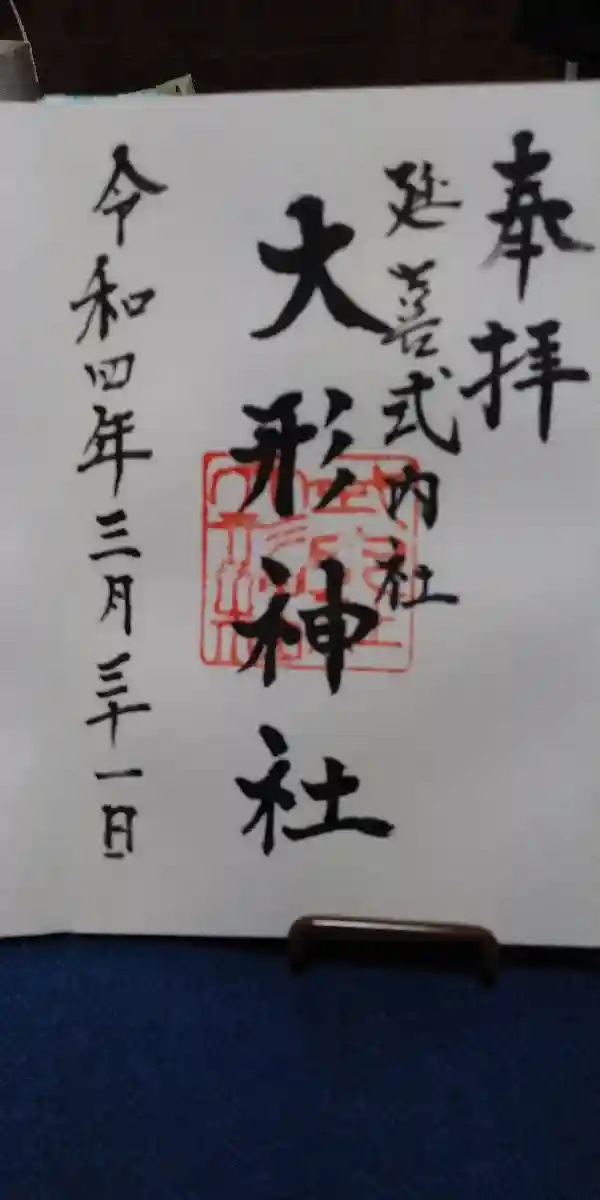 奉拝
延喜式内社
大形神社
令和四年三月三十一日